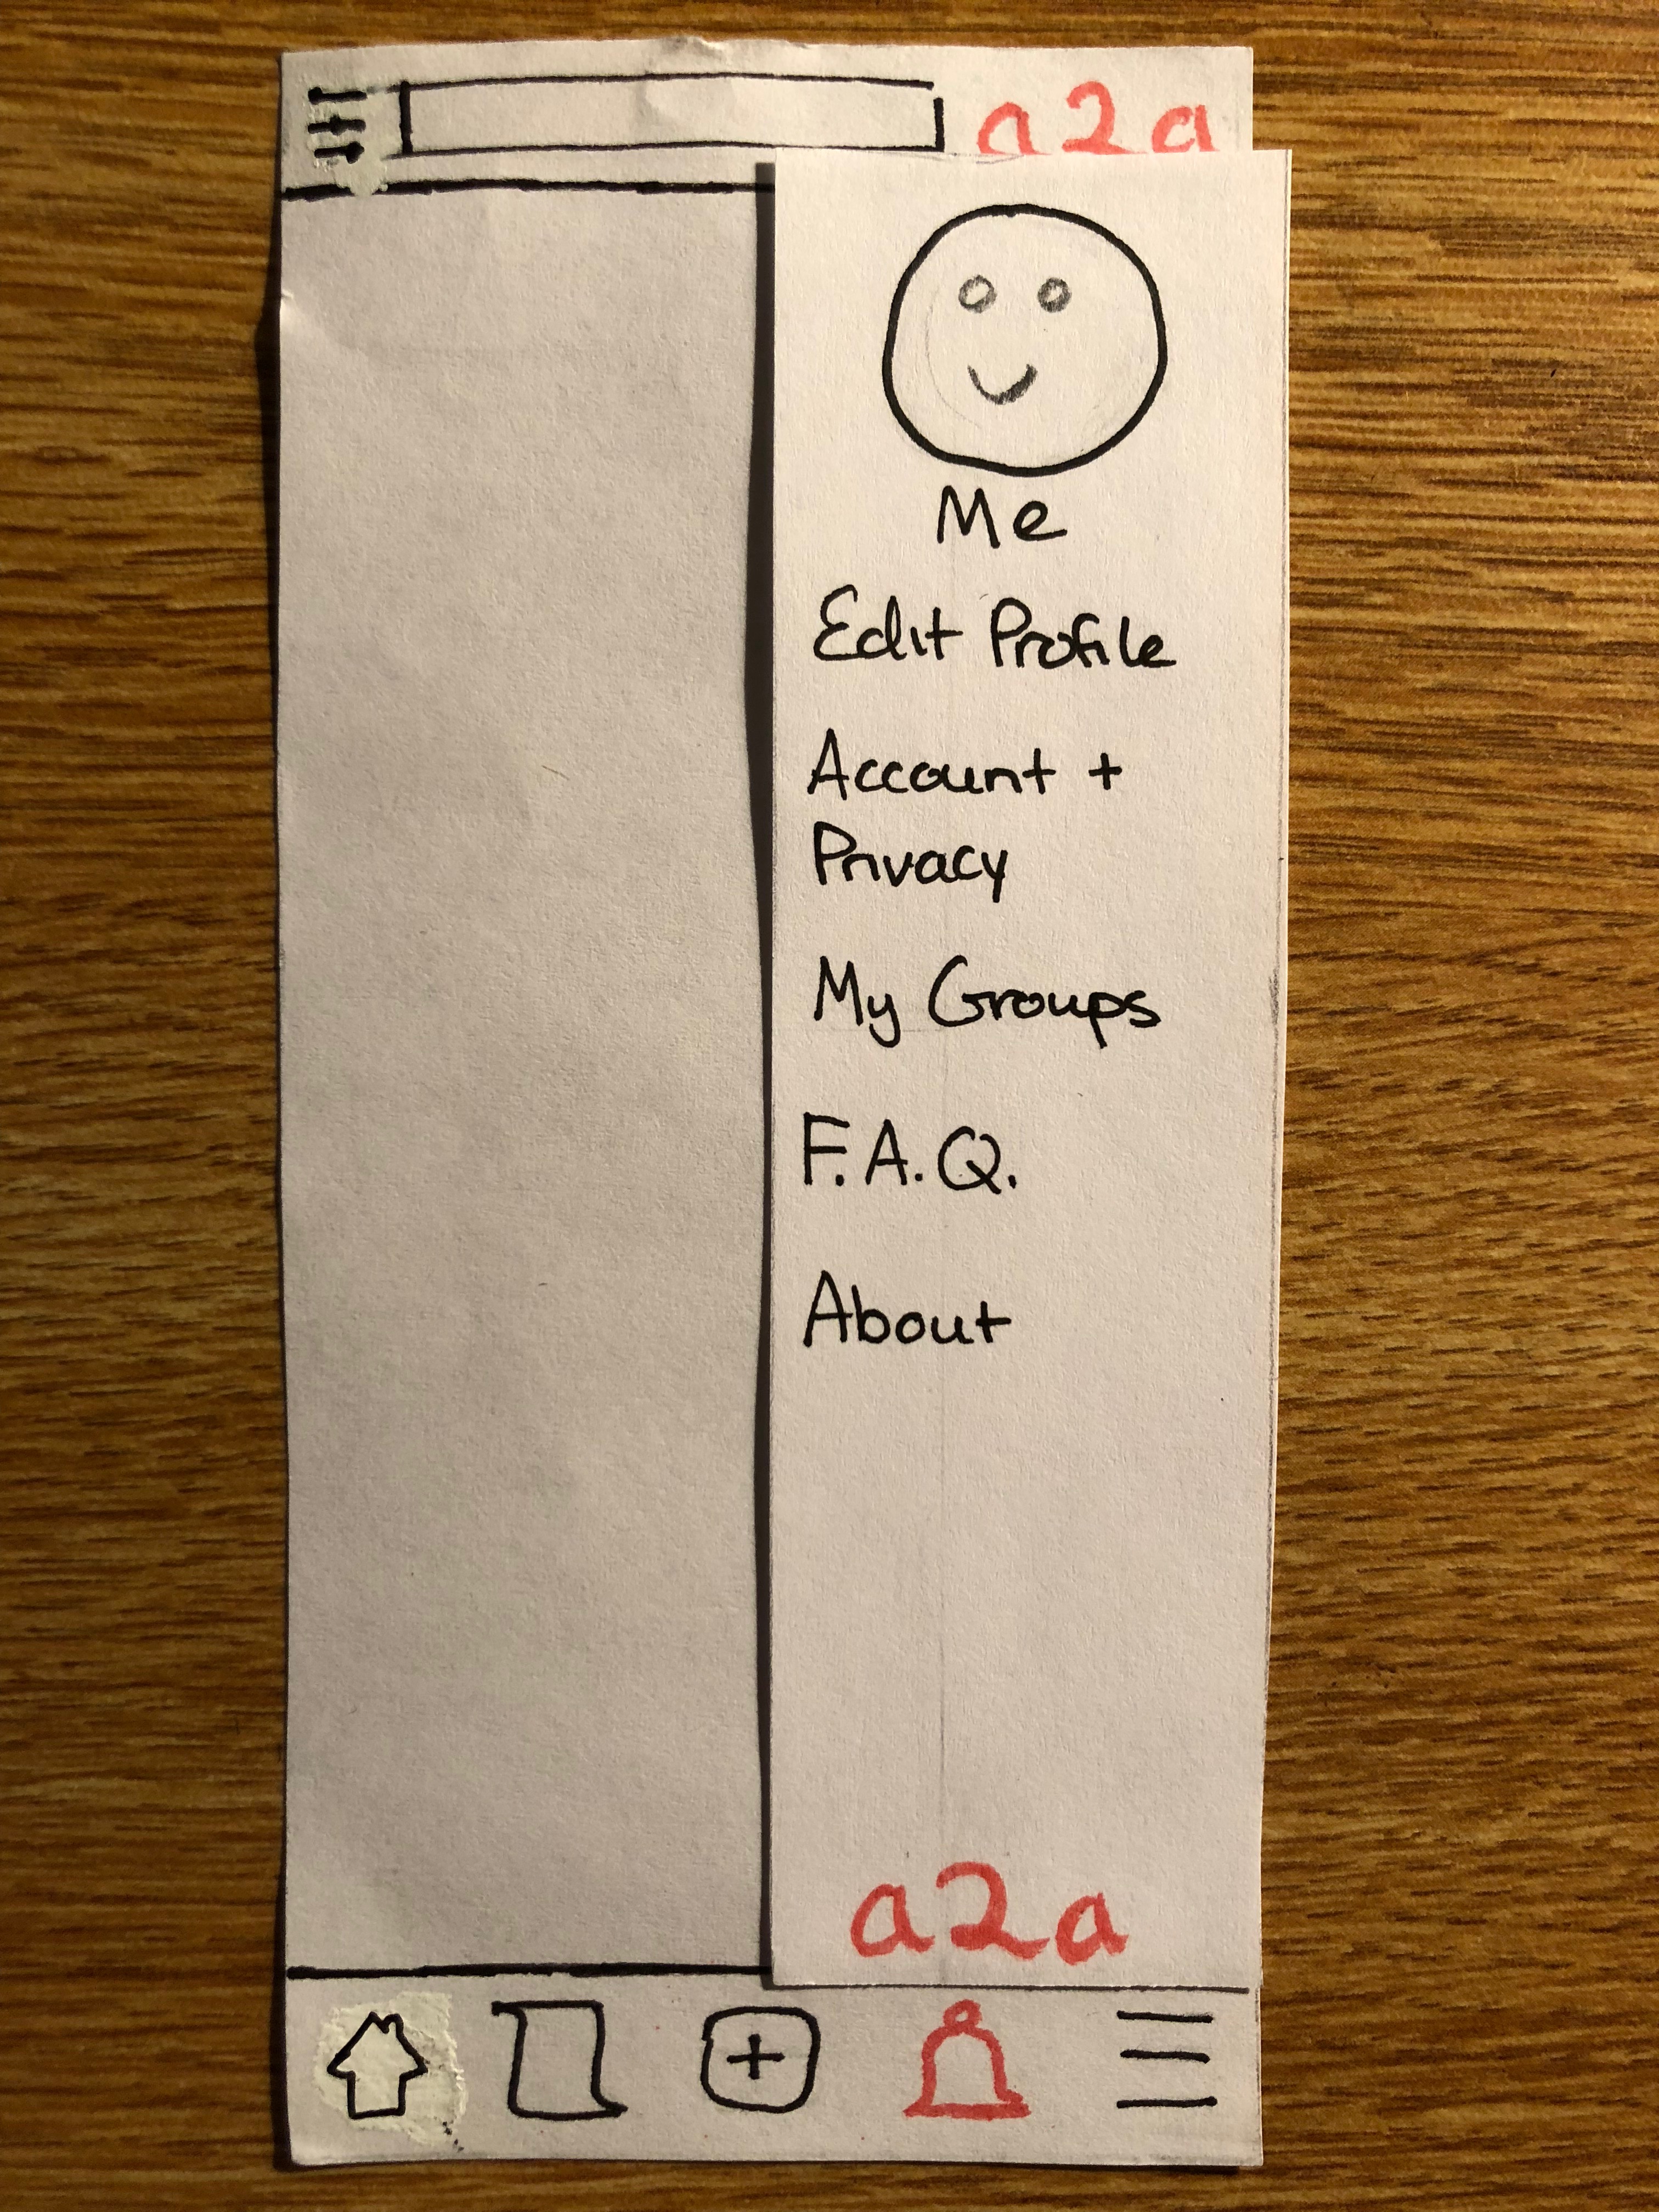 a2a
Me
Edit Profile
Account +
Privacy
My Groups
F.A.Q.
About
a2a